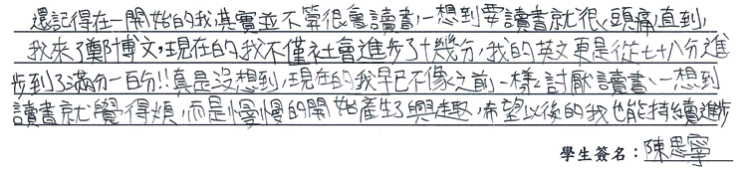 還記得在一開始的我其實並不算很會讀書,一想到要讀書就很頭痛,直到
我來了鄭博文,現在的我不僅社會進步了十幾分,我的英文更是從七十八分進
步到了滿分一百分!!真是沒想到,現在的我早已不像之前一樣討厭讀書、一想到
讀書就覺得煩,而是慢慢的開始產生了興趣,希望以後的我也能持續進步
學生簽名:陳思寧